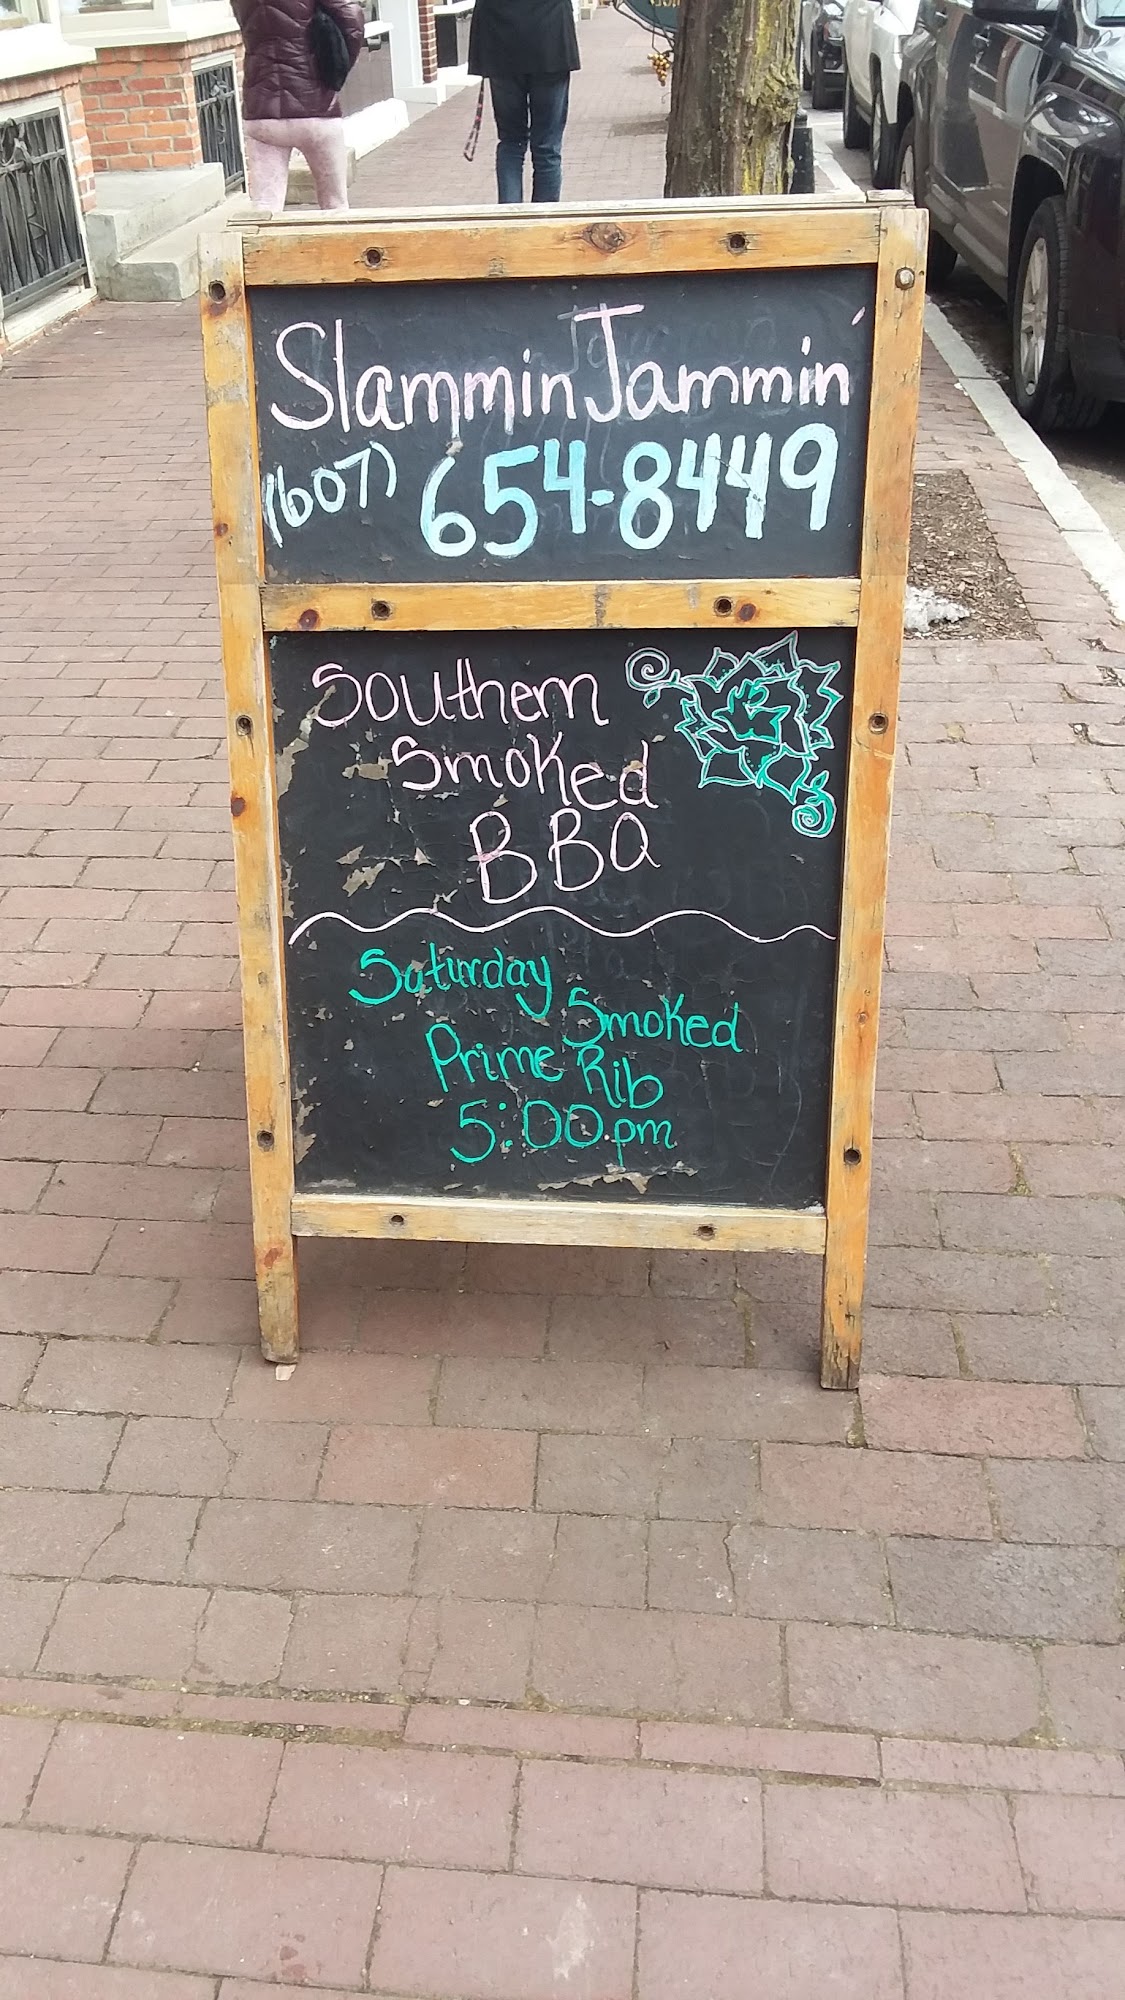 Slammin Jammin'
(607) 654-8449
Southern
Smoked
BBQ
Saturday
Smoked
Prime Rib
5:00pm